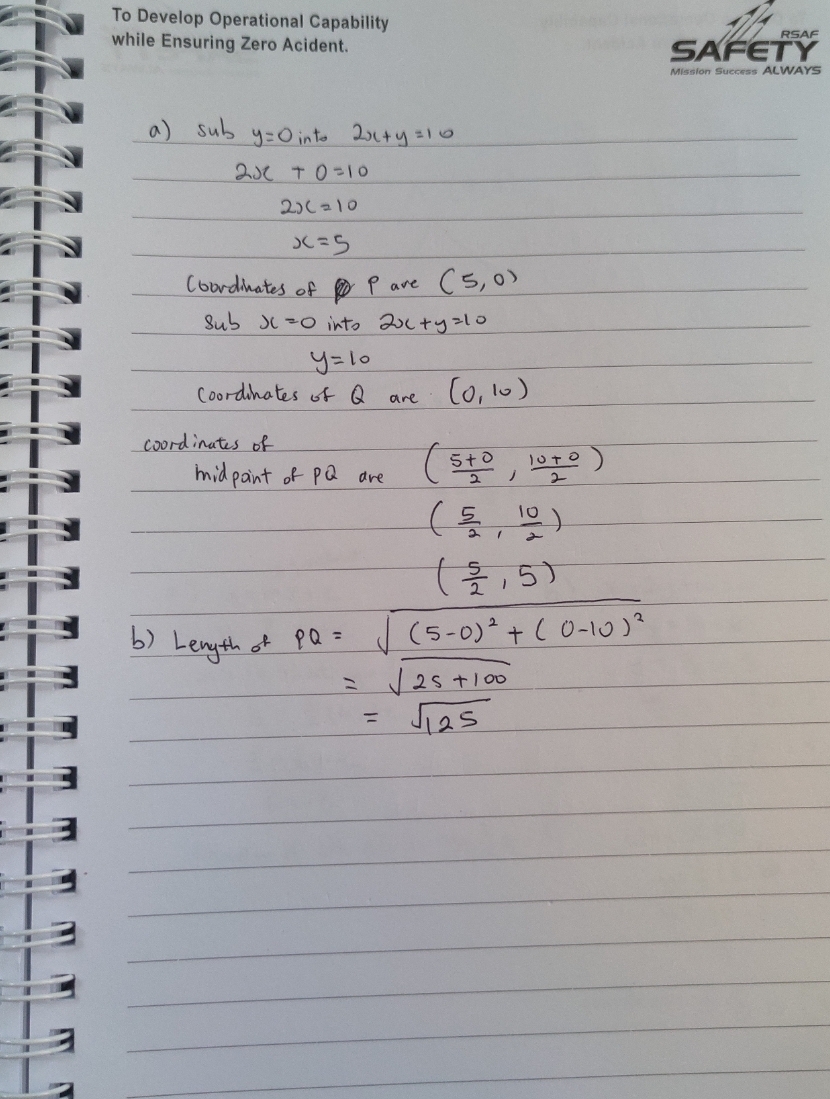 To Develop Operational Capability
while Ensuring Zero Acident.
RSAF
SAFETY
Mission Success ALWAYS
a) sub y=0 into 2x+y=10
2x + 0=10
2x=10
x=5
Coordinates of P are (5,0)
Sub x=0 into 2x+y=10
y=10
Coordinates of Q are (0,10)
coordinates of
midpoint of PQ are (5+0/2, 10+0/2)
(5/2, 10/2)
(5/2, 5)
b) Length of PQ = √(5-0)² + (0-10)²
= √25+100
= √125